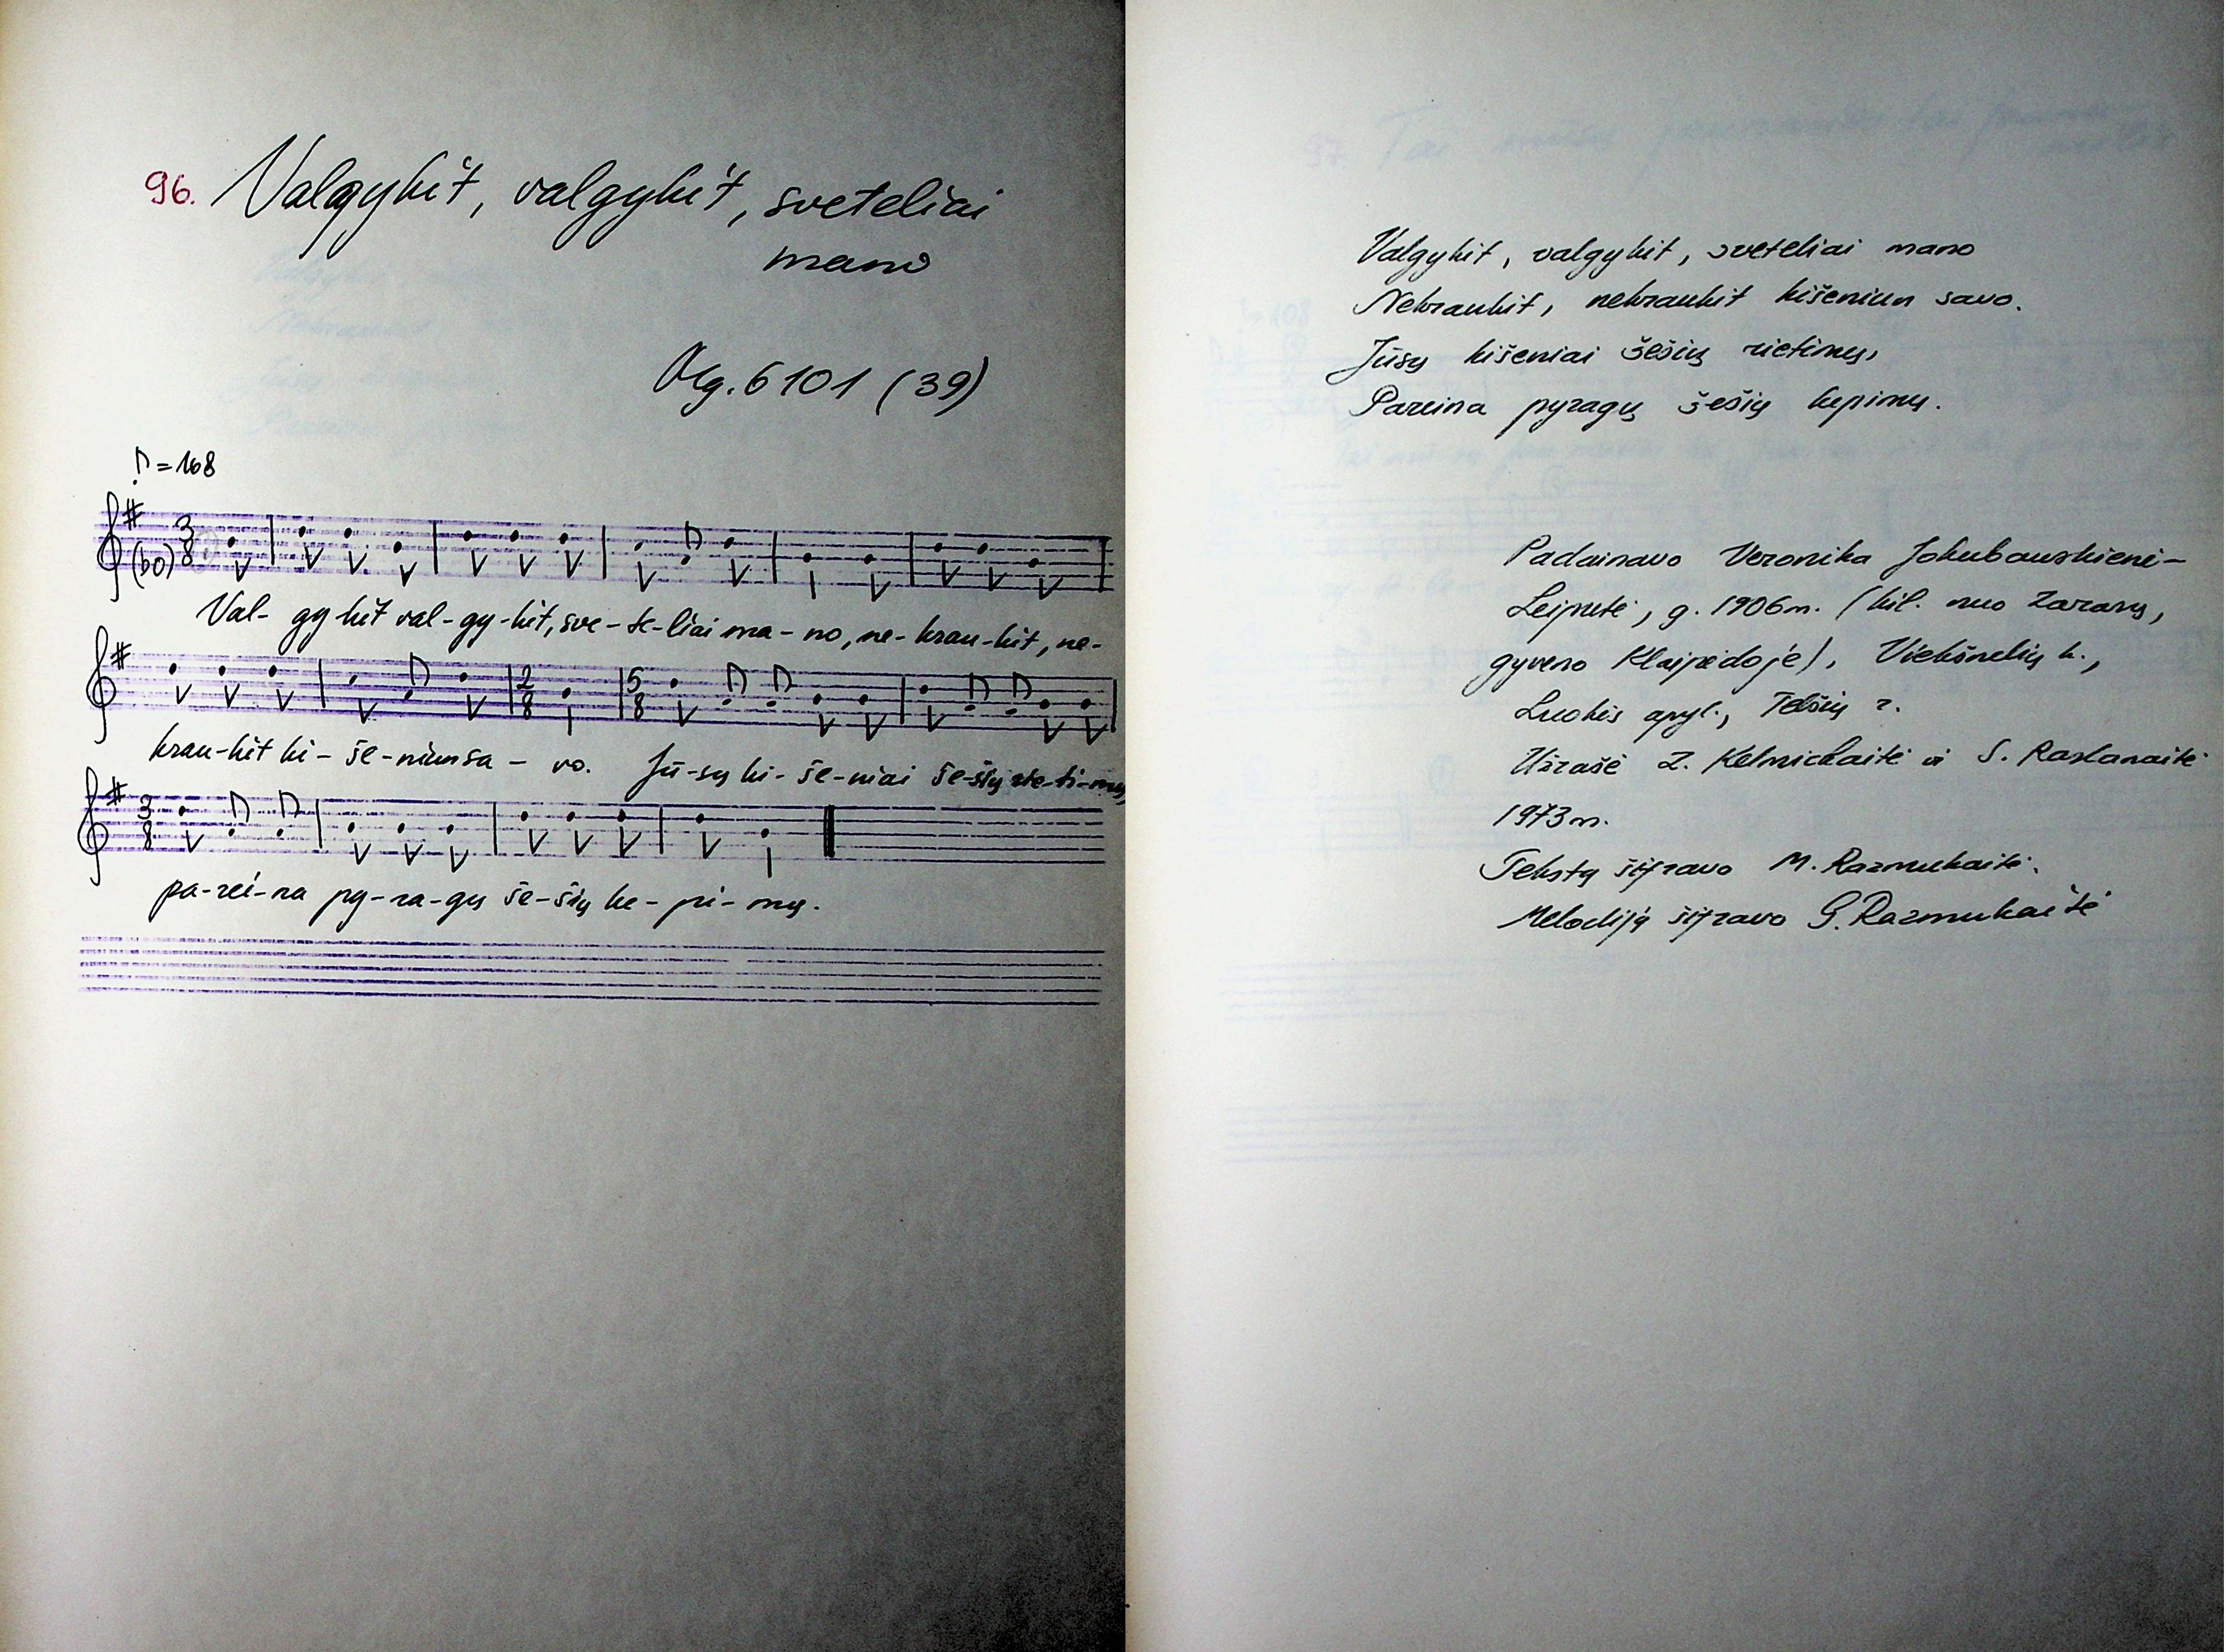 96. Valgykit, valgykit, sveteliai
mano
Mg. 6101 (39)
♪=168
(b0) 3/8
Val- gy-kit val-gy-kit, sve-te-liai ma-no, ne-krau-kit, ne-
2/8 5/8
krau-kit ki-še-niun sa-vo. Jū-sų ki-še-niai še-šių rie-ti-mų,
3/8
pa-rei-na py-ra-gų še-šių ke-pi-mų.
Valgykit, valgykit, sveteliai mano
Nekraukit, nekraukit kišeniun savo.
Jūsų kišeniai šešių rietimų,
Pareina pyragų šešių kepimų.
Padainavo Veronika Jokubauskienė-
Leiputė, g. 1906 m. (kil. nuo Zarasų,
gyveno Klaipėdoje), Viekšnelių k.,
Luokės apyl., Telšių r.
Užrašė Z. Kelmickaitė ir S. Raslanaitė
1973 m.
Tekstą šifravo M. Razmukaitė.
Melodiją šifravo G. Razmukaitė